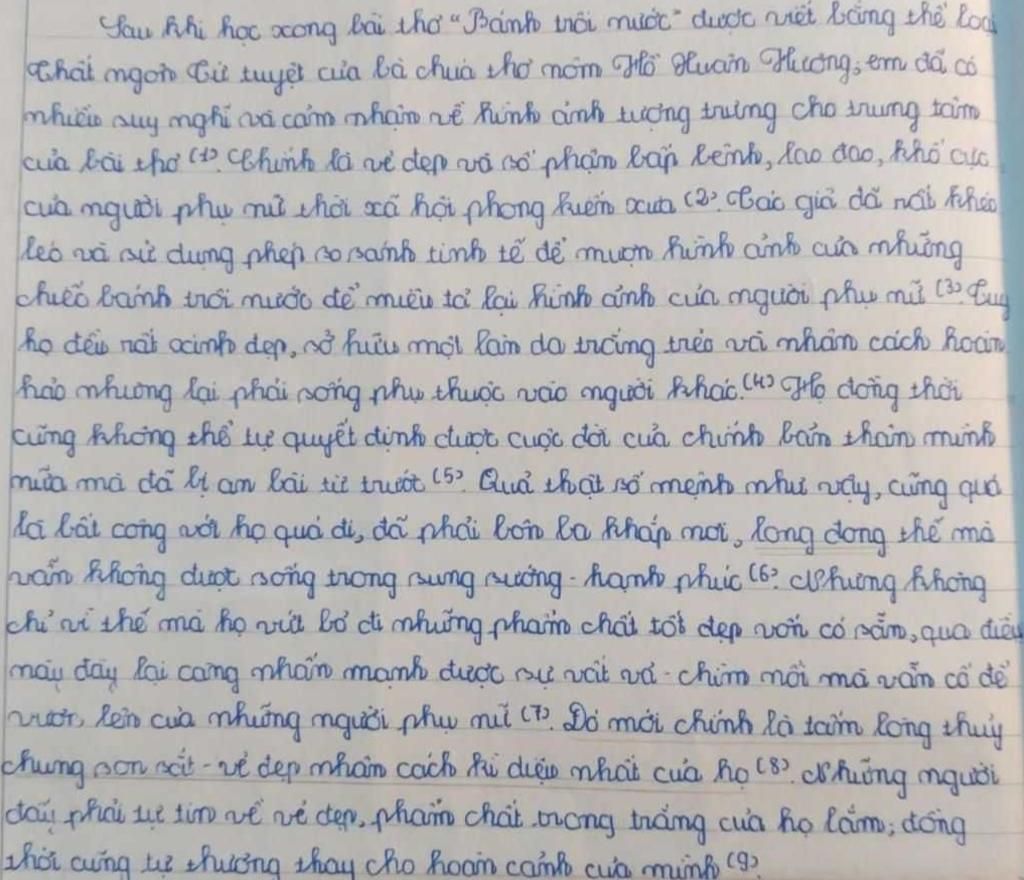 Sau khi học xong bài thơ "Bánh trôi nước" được viết bằng thể loại
thất ngôn tứ tuyệt của bà chúa thơ nôm Hồ Xuân Hương, em đã có
nhiều suy nghĩ và cảm nhận về hình ảnh tượng trưng cho trung tâm
của bài thơ (1). Chính là vẻ đẹp và số phận bấp bênh, lao đao, khổ cực
của người phụ nữ thời xã hội phong kiến xưa (2). Tác giả đã rất khéo
léo và sử dụng phép so sánh tinh tế để mượn hình ảnh của những
chiếc bánh trôi nước để miêu tả lại hình ảnh của người phụ nữ (3). Tuy
họ đều rất xinh đẹp, sở hữu một làn da trắng trẻo và nhân cách hoàn
hảo nhưng lại phải sống phụ thuộc vào người khác. (4) Họ đồng thời
cũng không thể tự quyết định được cuộc đời của chính bản thân mình
nữa mà đã bị an bài từ trước (5). Quả thật số mệnh như vậy, cũng quá
là bất công với họ quá đi, đã phải bôn ba khắp nơi, long đong thế mà
vẫn không được sống trong sung sướng - hạnh phúc (6). Nhưng không
chỉ vì thế mà họ vứt bỏ đi những phẩm chất tốt đẹp vốn có sẵn, qua điều
này đây lại càng nhấn mạnh được sự vất vả - chìm nổi mà vẫn cố để
vươn lên của những người phụ nữ (7). Đó mới chính là tấm lòng thuỷ
chung son sắt - vẻ đẹp nhân cách kì diệu nhất của họ (8). Những người
đấy phải tự tin về vẻ đẹp, phẩm chất trong trắng của họ lắm; đồng
thời cũng tự thương thay cho hoàn cảnh của mình (9).